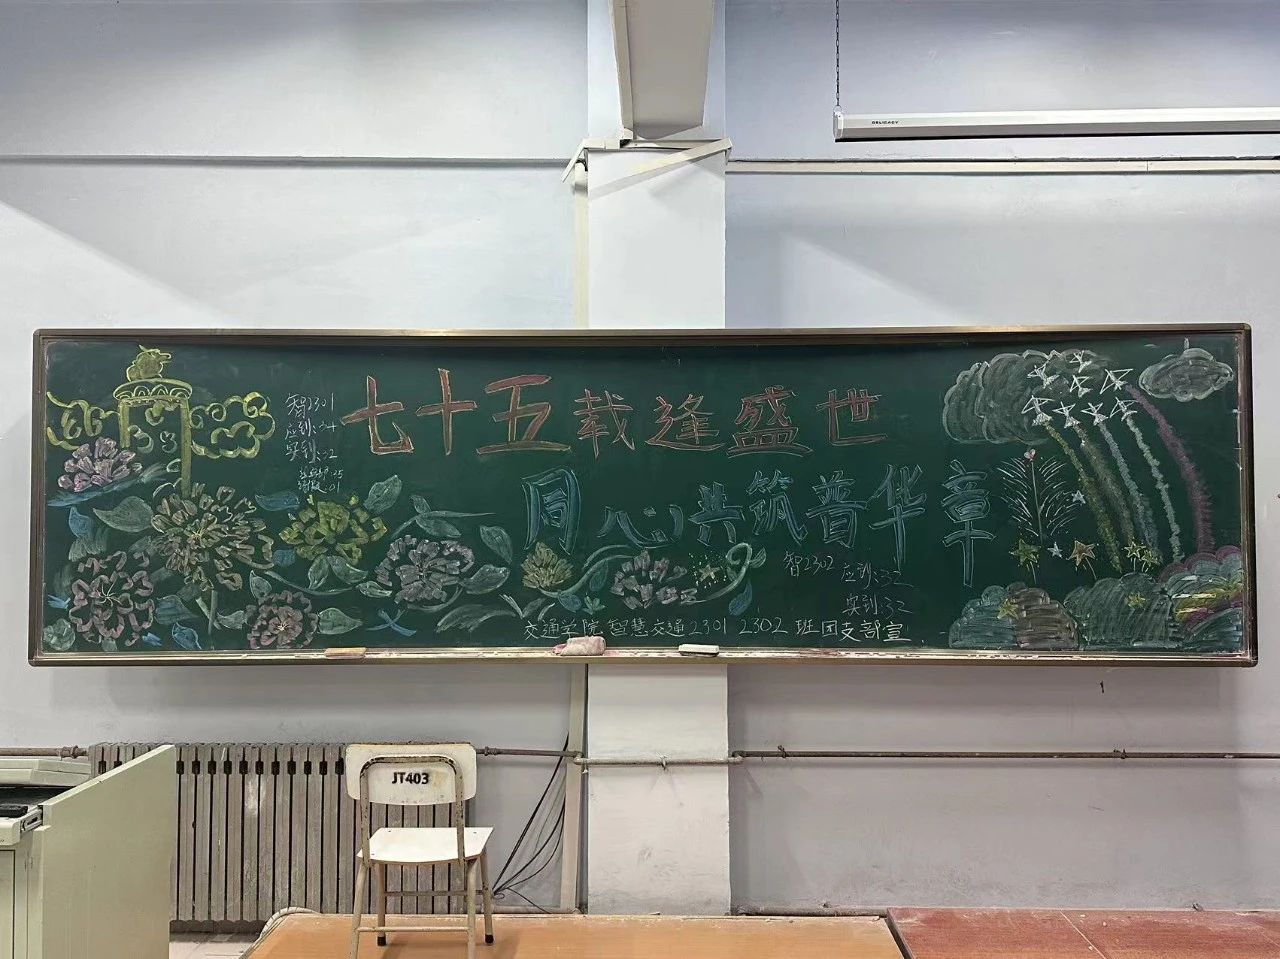 七十五载逢盛世
同心共筑普华章
智2301
应到:34
实到:32
智2302 应到:32
实到:32
交通学院 智慧交通2301 2302 班团支部宣
DELIGACY
JT403